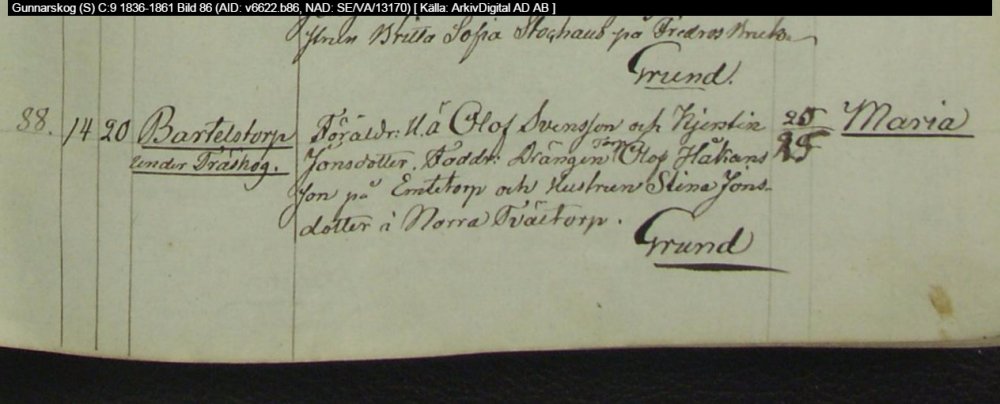 Gunnarskog (S) C:9 1836-1861 Bild 86 (AID: v6622.b86, NAD: SE/VA/13170) [ Källa: ArkivDigital AD AB ]
Britta Sofia på Fredros Bruk
Grund.
88. 14 20 Bartelstorp Föräldr: N.ä Olof Svensson och Kjerstin 25 Maria
under Träskog. Jonsdotter. Faddr: Drängen Olof Håkans 25
son på Emtetorp och Hustrun Stina Jons-
dotter i Norra Tvätorp.
Grund